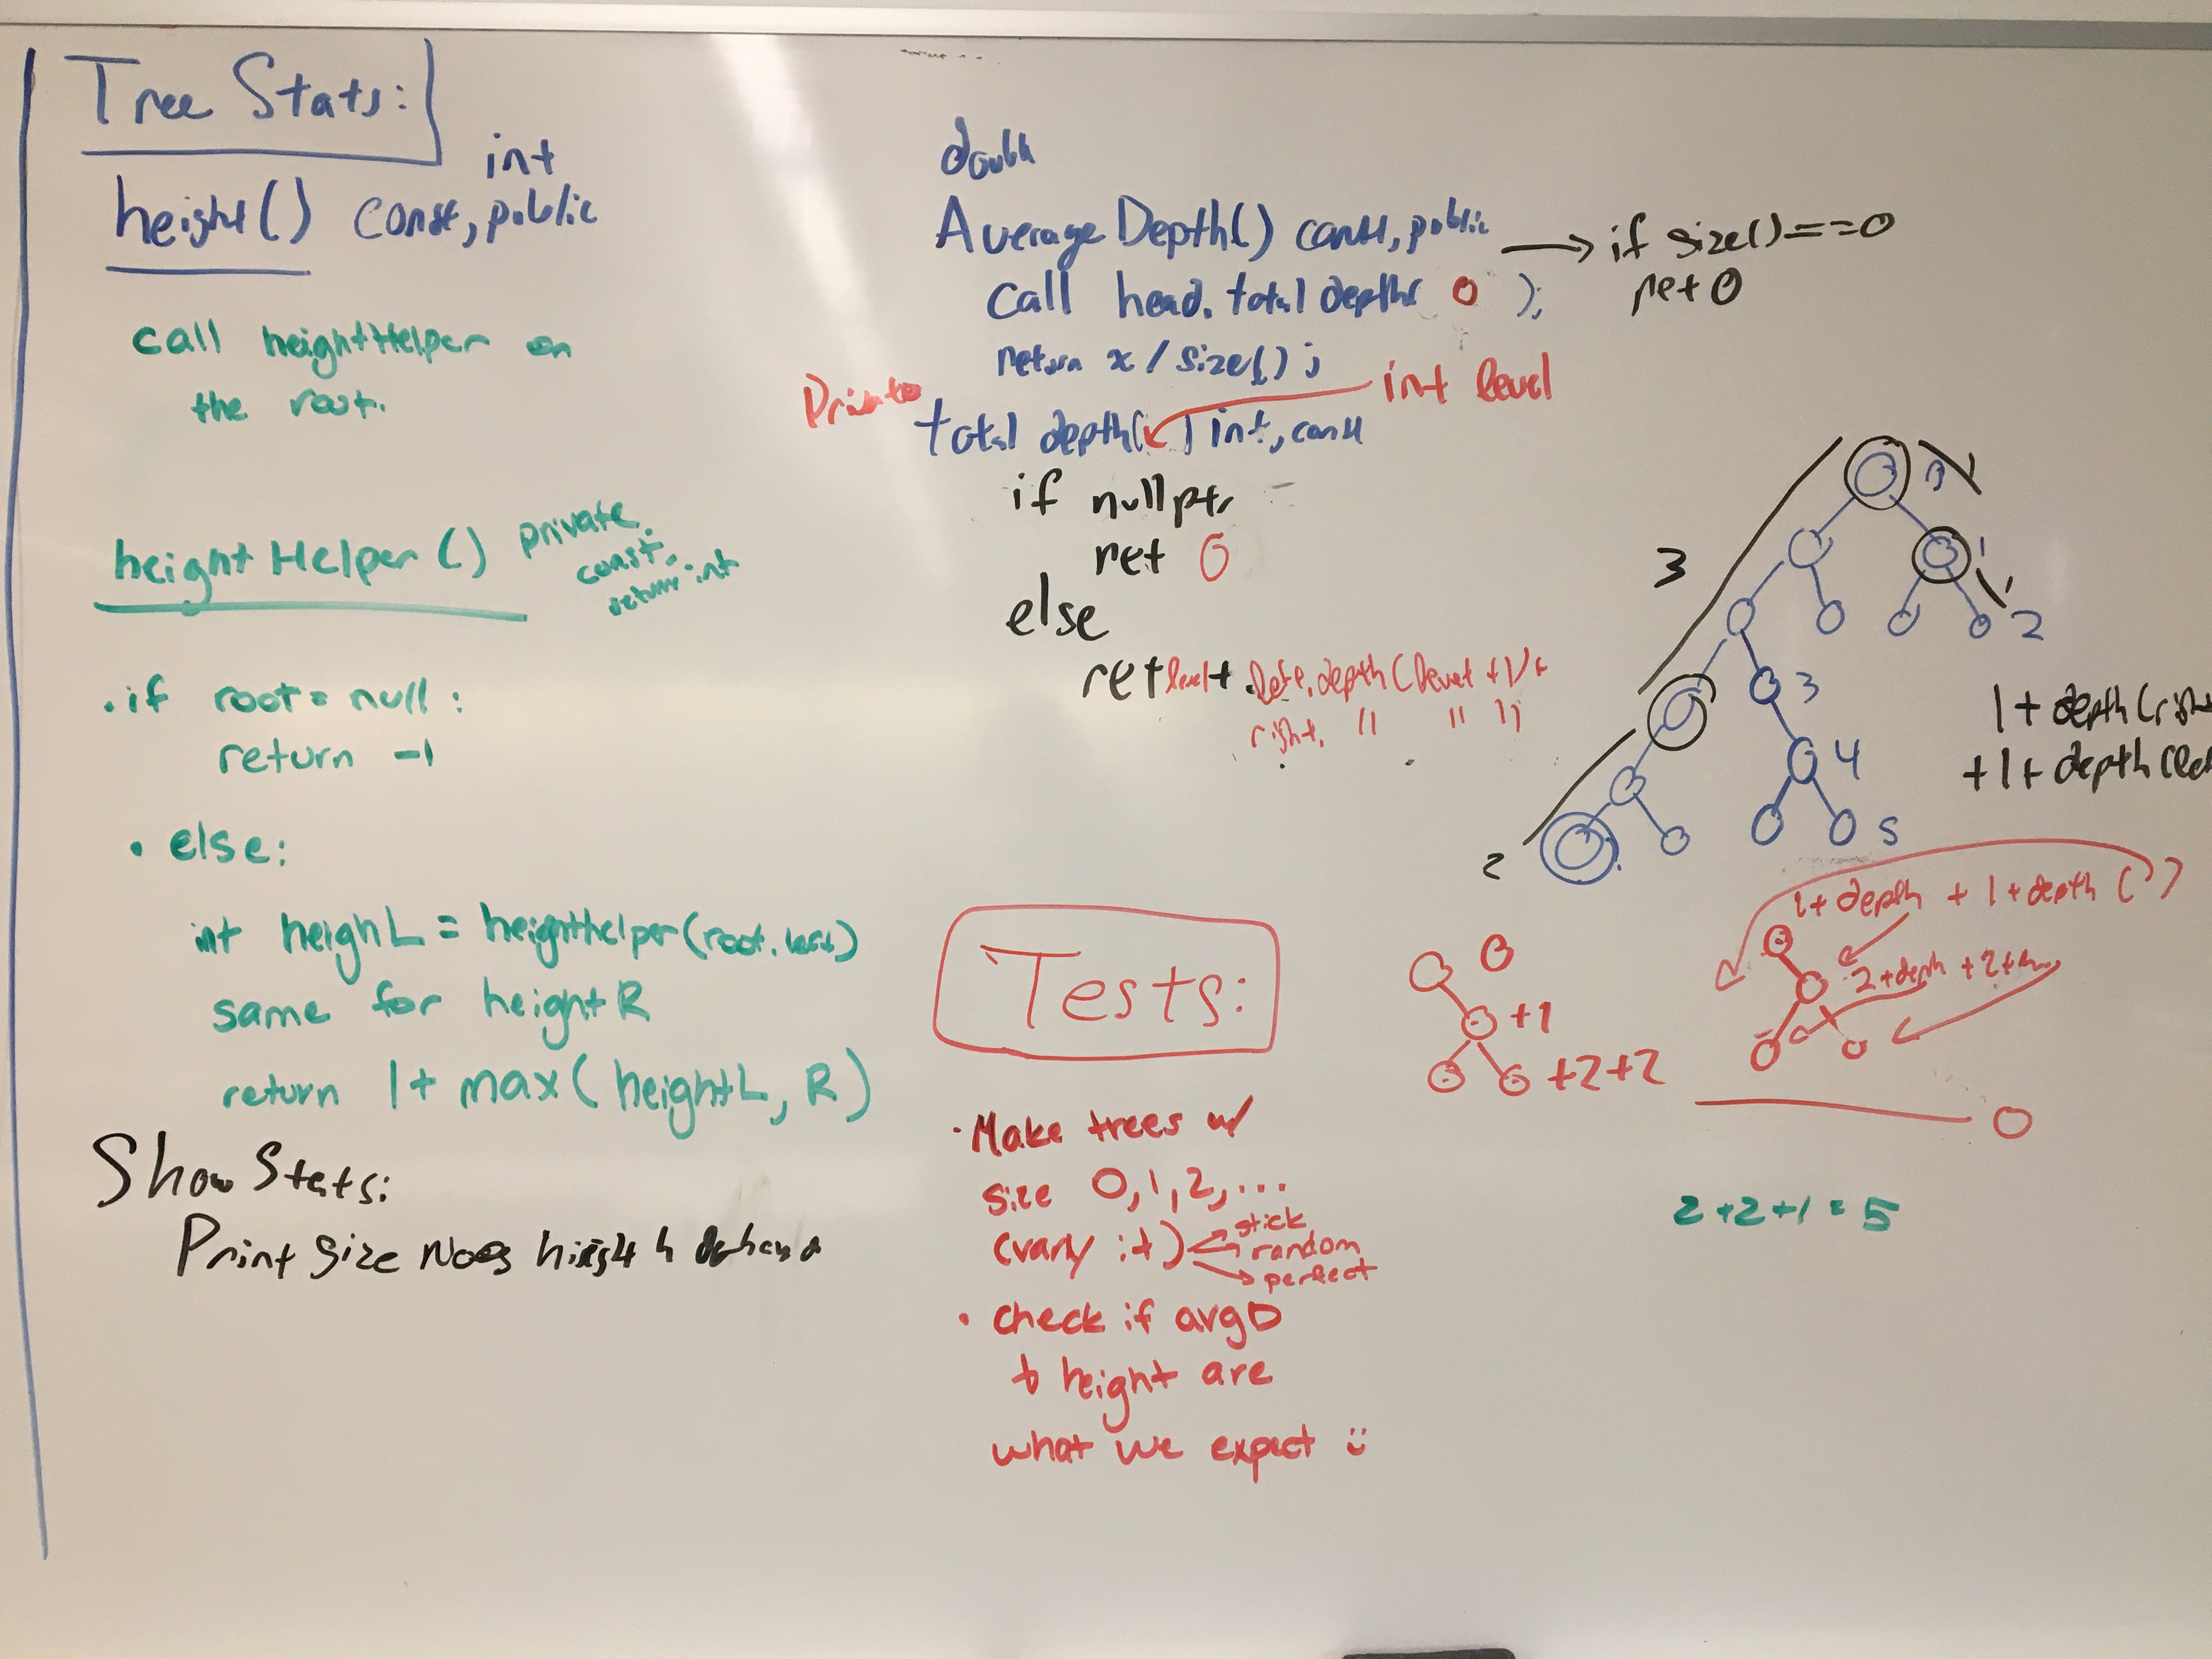 Tree Stats:
int
height() const, public
call heightHelper on
the root.
heightHelper() private
const.
return int
. if root = null:
return -1
• else:
int heighL = heighthelper(root.left)
same for heightR
return 1+ max(heightL, R)
Show Stats:
Print Size
double
AverageDepth() const, public → if size()==0
ret 0
call head. total depth( 0 );
return x / size();
Private
int level
total depth( ) int, const
if nullptr
ret 0
else
ret level + left.depth(level +1) +
right. " " ");
0 1
1
1
3
2
3
4
5
2
1+ depth(right
+1+ depth(left
Tests:
• Make trees w/
size 0,1,2,...
(vary it)
stick
random
perfect
• check if avgD
+ height are
what we expect :)
0
+1
+2+2
1+ depth + 1+depth ( )
2+depth +2+
0
2+2+1=5